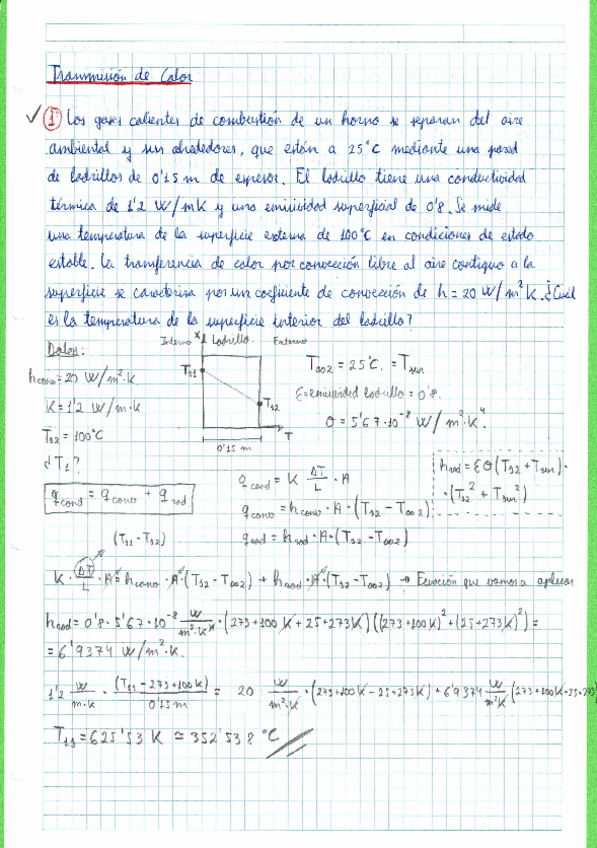 Transmisión de Calor
✓ 1. Los gases calientes de combustión de un horno se separan del aire
ambiental y sus alrededores, que están a 25°C mediante una pared
de ladrillos de 0'15 m de espesor. El ladrillo tiene una conductividad
térmica de 1'2 W/mK y una emisividad superficial de 0'8. Se mide
una temperatura de la superficie externa de 100°C en condiciones de estado
estable. La transferencia de calor por convección libre al aire contiguo a la
superficie se caracteriza por un coeficiente de convección de h = 20 W/m²K. ¿Cuál
es la temperatura de la superficie interior del ladrillo?
Datos:
Interno x Ladrillo. Externo
hconv = 20 W/m²·K
K = 1'2 W/m·K
Ts2 = 100°C
¿T1?
Ts1
Ts2
0'15 m
T
T∞2 = 25°C. = Tsur
ε = emisividad ladrillo = 0'8.
σ = 5'67·10⁻⁸ W/m²·K⁴.
qcond = qconv + qrad
qcond = K · ΔT/L · A
qconv = hconv · A · (Ts2 - T∞2)
qrad = hrad · A · (Ts2 - T∞2)
hrad = εσ(Ts2 + Tsur)·
·(Ts2² + Tsur²)
(Ts1 - Ts2)
K · ΔT/L · A = hconv · A · (Ts2 - T∞2) + hrad · A · (Ts2 - T∞2) → Ecuación que vamos a aplicar
hrad = 0'8 · 5'67·10⁻⁸ W/m²·K⁴ · (273+100 K + 25+273K)((273+100K)² + (25+273K)²) =
= 6'9374 W/m²·K.
1'2 W/m·K · (Ts1 - 273+100K)/0'15m = 20 W/m²·K · (273+100K - 25+273K) + 6'9374 W/m²K (273+100K - 25+273
Ts1 = 625'53 K ≃ 352'538 °C